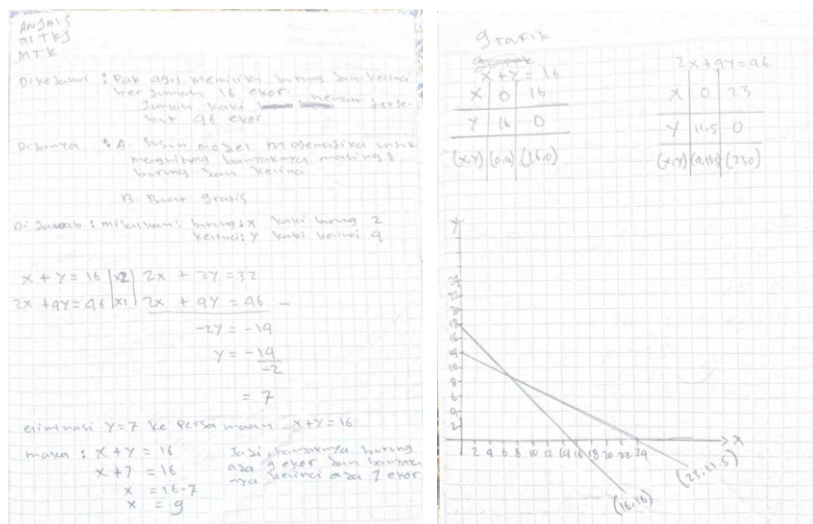 ANJAIS
XI TKJ
MTK
Diketahui : Pak agil memiliki burung dan kelinci
berjumlah 16 ekor.
Jumlah kaki hewan terse-
but 46 ekor
Ditanya : A. Susun model matematika untuk
menghitung banyaknya masing2
burung dan kelinci
B. Buat grafis
Di Jawab : misalkan : burung : x kaki burung 2
kelinci : y kaki kelinci 4
x + y = 16 |x2| 2x + 2y = 32
2x + 4y = 46 |x1| 2x + 4y = 46 -
-2y = -14
y = -14
-2
= 7
eliminasi y=7 ke persamaan x+y=16
maka : x + y = 16
x + 7 = 16
x = 16-7
x = 9
Jadi, banyaknya burung
ada 9 ekor dan banyak
nya kelinci ada 7 ekor
Grafik
x + y = 16
x | 0 | 16
y | 16 | 0
(x,y) | (0,16) | (16,0)
2x + 4y = 46
x | 0 | 23
y | 11.5 | 0
(x,y) | (0,11.5) | (23,0)
y
8
6
4
2
2 4 6 8 10 12 14 16 18 20 22 24
x
(16,16)
(23,11.5)